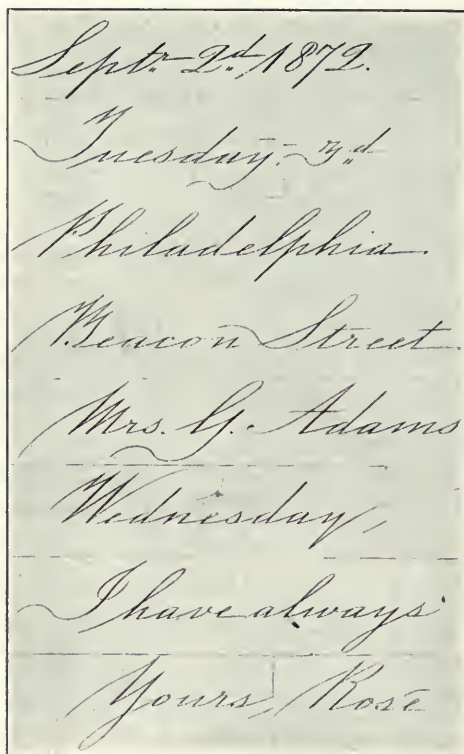 Septr. 2d, 1872.
Tuesday. 3d
Philadelphia
Beacon Street
Mrs. G. Adams
Wednesday,
I have always
Yours, Rose